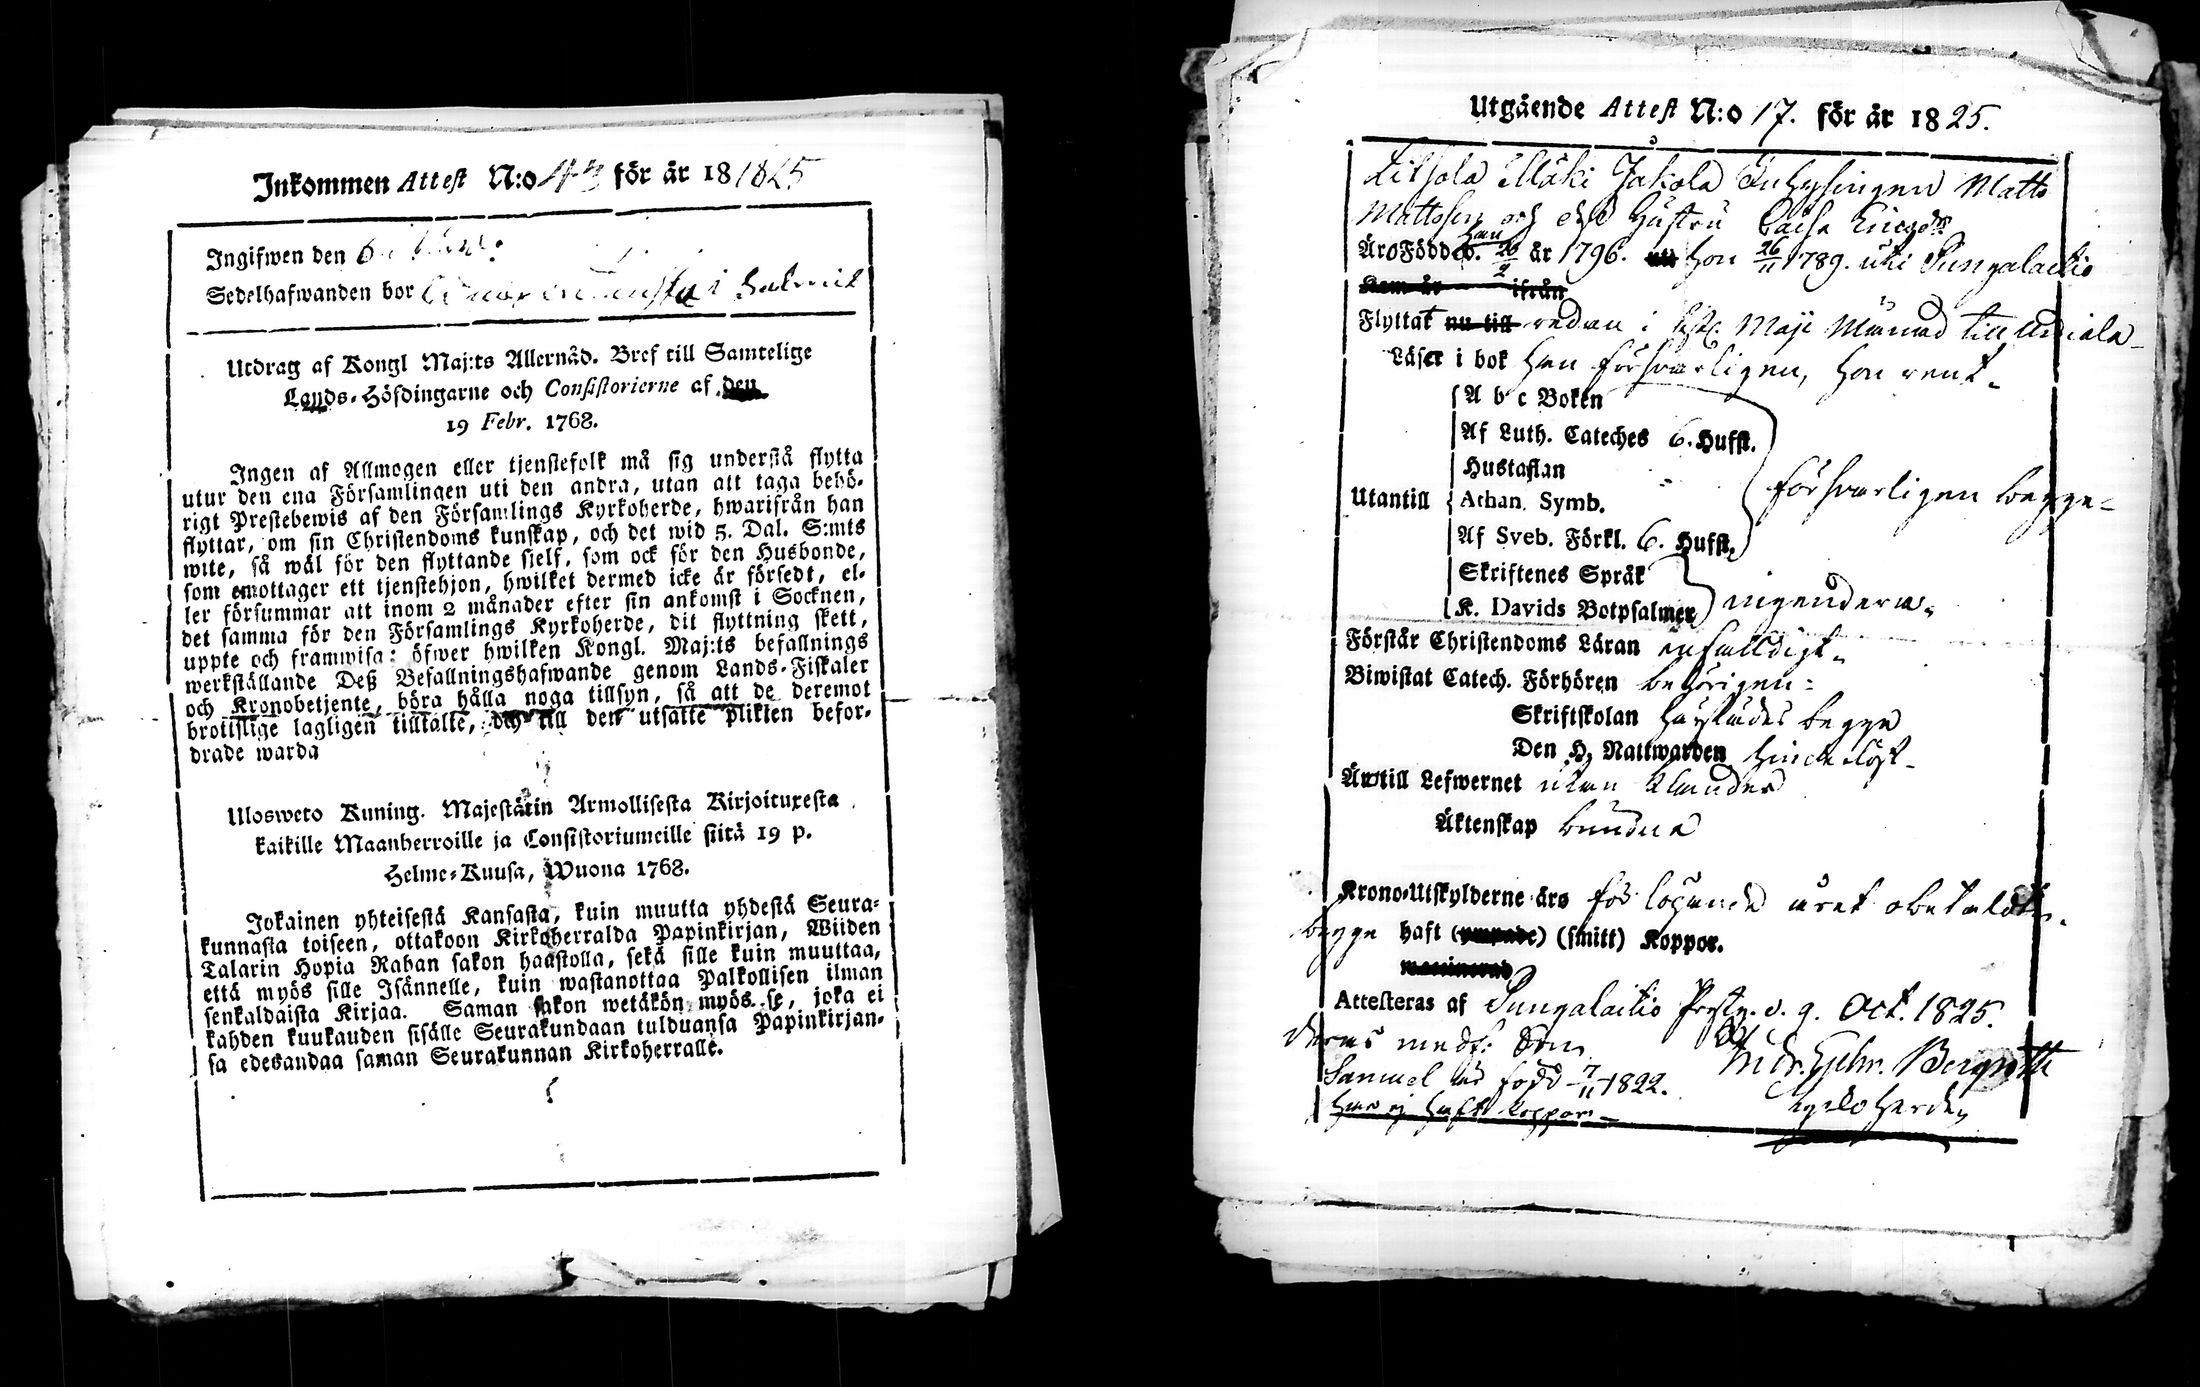 Inkommen Attest N:o 43 för år 18 1825
Ingifwen den 6
Sedelhafwanden bor
Utdrag af Kongl Maj:ts Allernåd. Bref till Samtelige
Lands-Höfdingarne och Consistorierne af den
19 Febr. 1768.
Ingen af Allmogen eller tjenstefolk må sig understå flytta
utur den ena Församlingen uti den andra, utan att taga behö-
rigt Prestebewis af den Församlings Kyrkoherde, hwarifrån han
flyttar, om sin Christendoms kunskap, och det wid 5. Dal. S:mts
wite, så wäl för den flyttande sielf, som ock för den Husbonde,
som emottager ett tjenstehjon, hwilket dermed icke är försedt, el-
ler försummar att inom 2 månader efter sin ankomst i Socknen,
det samma för den Församlings Kyrkoherde, dit flyttning skett,
uppte och framwisa: öfwer hwilken Kongl. Maj:ts befallnings
werkställande Deß Befallningshafwande genom Lands-Fiskaler
och Kronobetjente, böra hålla noga tillsyn, så att de deremot
brottslige lagligen tilltalte, och till den utsatte plikten befor-
drade warda
Ulosweto Kuning. Majestätin Armollisesta Kirjoituxesta
kaikille Maanherroille ja Consistoriumeille siitä 19 p.
Helme-Kuusa, Wuona 1768.
Jokainen yhteisestä Kansasta, kuin muutta yhdestä Seura-
kunnasta toiseen, ottakoon Kirkoherralda Papinkirjan, Wiiden
Talarin Hopia Rahan sakon haastolla, sekä sille kuin muuttaa,
että myös sille Isännelle, kuin wastanottaa Palkollisen ilman
senkaldaista Kirjaa. Saman sakon wetäkön myös se, joka ei
kahden kuukauden sisälle Seurakundaan tulduansa Papinkirjan-
sa edesandaa saman Seurakunnan Kirkoherralle.
Utgående Attest N:o 17. för år 1825.
Mäki Jakola Inhysingen Matts
Mattsson och dess Hustru Caisa Ericsdr
Äro Född han d. 20/2 år 1796. hon 26/11 1789. uti Pungalaitio
Kom år ifrån
Flyttat nu till redan i sistl. Maji Månad till Urdiala
Läser i bok Han försvarligen, Hon rent
A b c Boken
Af Luth. Cateches 6. Hufst.
Hustaflan
Utantill Athan. Symb. försvarligen begge
Af Sveb. Förkl. 6. Hufst.
Skriftenes Språk
K. Davids Botpsalmer ingendera
Förstår Christendoms Läran enfaldigt
Biwistat Catech. Förhören behörigen
Skriftskolan härstädes begge
Den H. Nattwarden
Är till Lefwernet utan klander
Äktenskap bundna
Krono-Utskylderne äro för löpande året obetalde
begge haft (ympade) (smitt) Koppor.
Attesteras af Pungalaitio Prestg. d. 9. Oct. 1825.
deras medf: Son
Samuel är född 7/11 1822.
Har ej haft koppor
Bergroth
Kyrkoherde